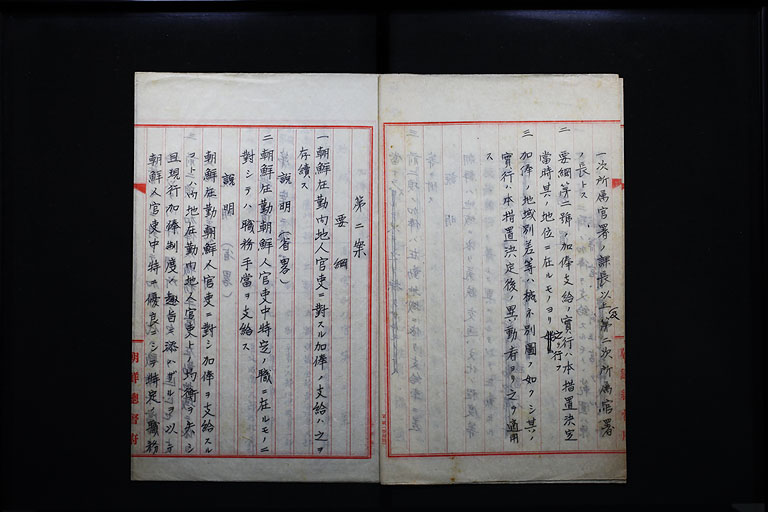 一次所属官署ノ課長以上第二次所属官署
ノ長トス
二 要綱第二號ノ加俸支給ノ實行ハ本措置決定
當時其ノ地位ニ在ルモノヨリ之ヲ行フ
三 加俸ノ地域別差等ハ概ネ別圖ノ如クシ其ノ
實行ハ本措置決定後ノ異動者ヨリ之ヲ適用
ス
第二案
要綱
一 朝鮮在勤内地人官吏ニ對スル加俸ノ支給ハ之ヲ
存續ス
説明(省略)
二 朝鮮在勤朝鮮人官吏中特定ノ職ニ在ルモノニ
對シテハ職務手當ヲ支給ス
説明(省畧)
朝鮮在勤朝鮮人官吏ニ對シ加俸ヲ支給スル
コトハ内地在勤内地人官吏トノ均衡ヲ失シ
且現行加俸制度ノ趣旨ニ添ハザルヲ以テ
朝鮮人官吏中特ニ優良ニシテ特定ノ職務
朝鮮總督府